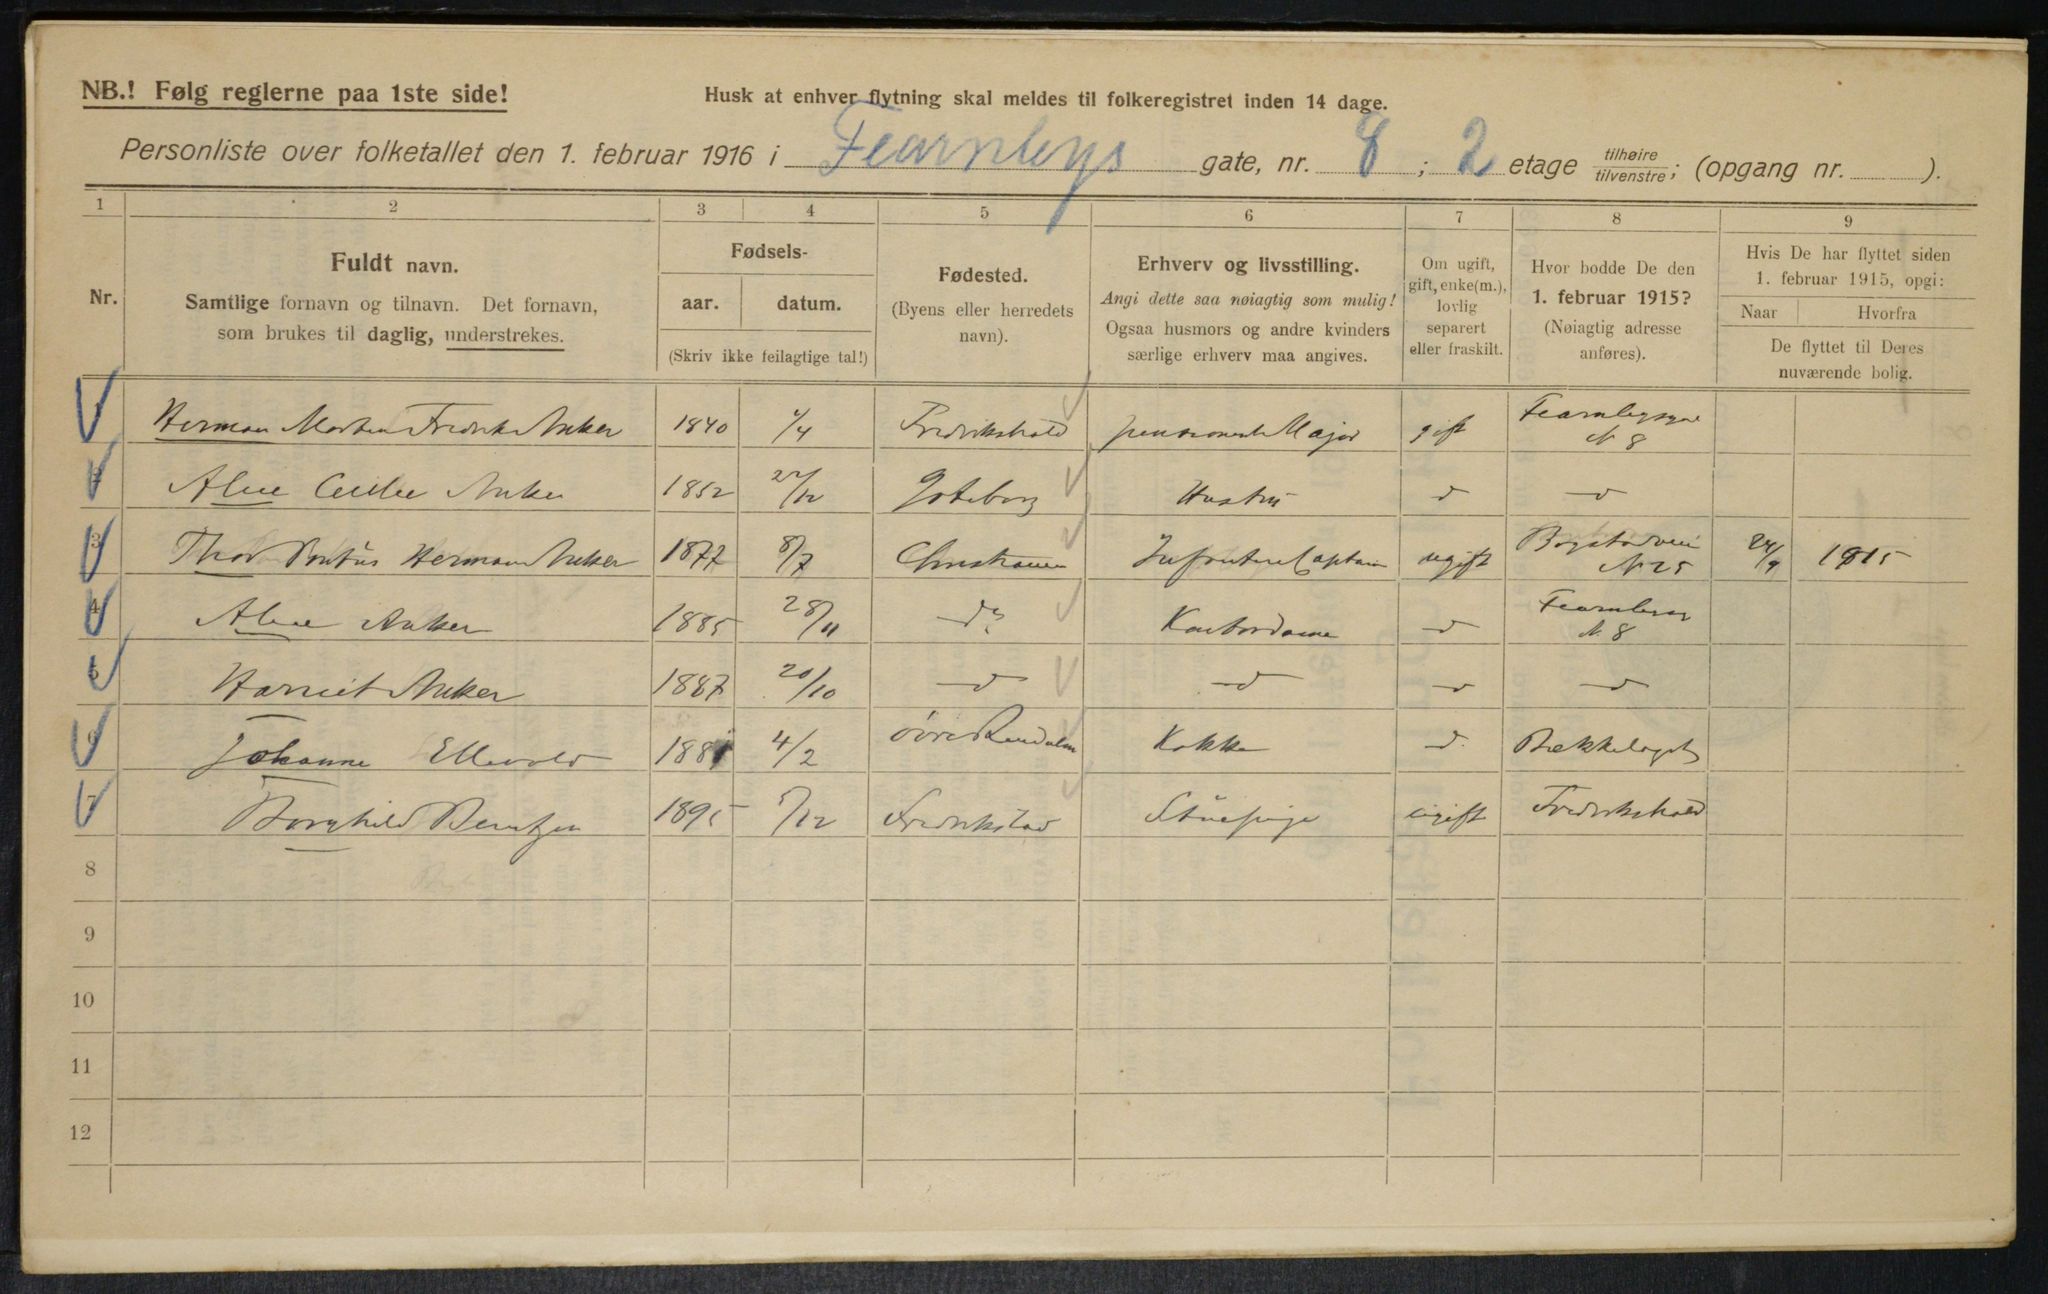 NB.! Følg reglerne paa 1ste side!
Husk at enhver flytning skal meldes til folkeregistret inden 14 dage.
Personliste over folketallet den 1. februar 1916 i Fearnleys gate, nr. 8 ; 2 etage tilhøire tilvenstre; (opgang nr. ).
1 2 3 4 5 6 7 8 9
Nr.
Fuldt navn.
Samtlige fornavn og tilnavn. Det fornavn,
som brukes til daglig, understrekes.
Fødsels-
aar. datum.
(Skriv ikke feilagtige tal!)
Fødested.
(Byens eller herredets
navn).
Erhverv og livsstilling.
Angi dette saa nøiagtig som mulig!
Ogsaa husmors og andre kvinders
særlige erhverv maa angives.
Om ugift,
gift, enke(m.),
lovlig
separert
eller fraskilt.
Hvor bodde De den
1. februar 1915?
(Nøiagtig adresse
anføres).
Hvis De har flyttet siden
1. februar 1915, opgi:
Naar Hvorfra
De flyttet til Deres
nuværende bolig.
1 Herman Morten Fredrik Anker 1840 /4 Fredrikshald Major gift N 8
2 Alice Anker 1852 /12 Gøteborg Hustru d d
3 Thor Pontus Herman Anker 1877 8/7 Christiania Infanteri Captain ugift Bogstadveien N 25 24/9 1915
4 Alice Anker 1885 28/11 do Kontordame d N. 8
5 Harriet Anker 1887 20/10 d d d d
6 Johanne Ellevold 188 4/2 Øvre Rendalen Kokke d. Bækkelaget
7 Borghild Berntzen 1895 /12 Fredrikstad Stuepige ugift Fredrikshald
8
9
10
11
12